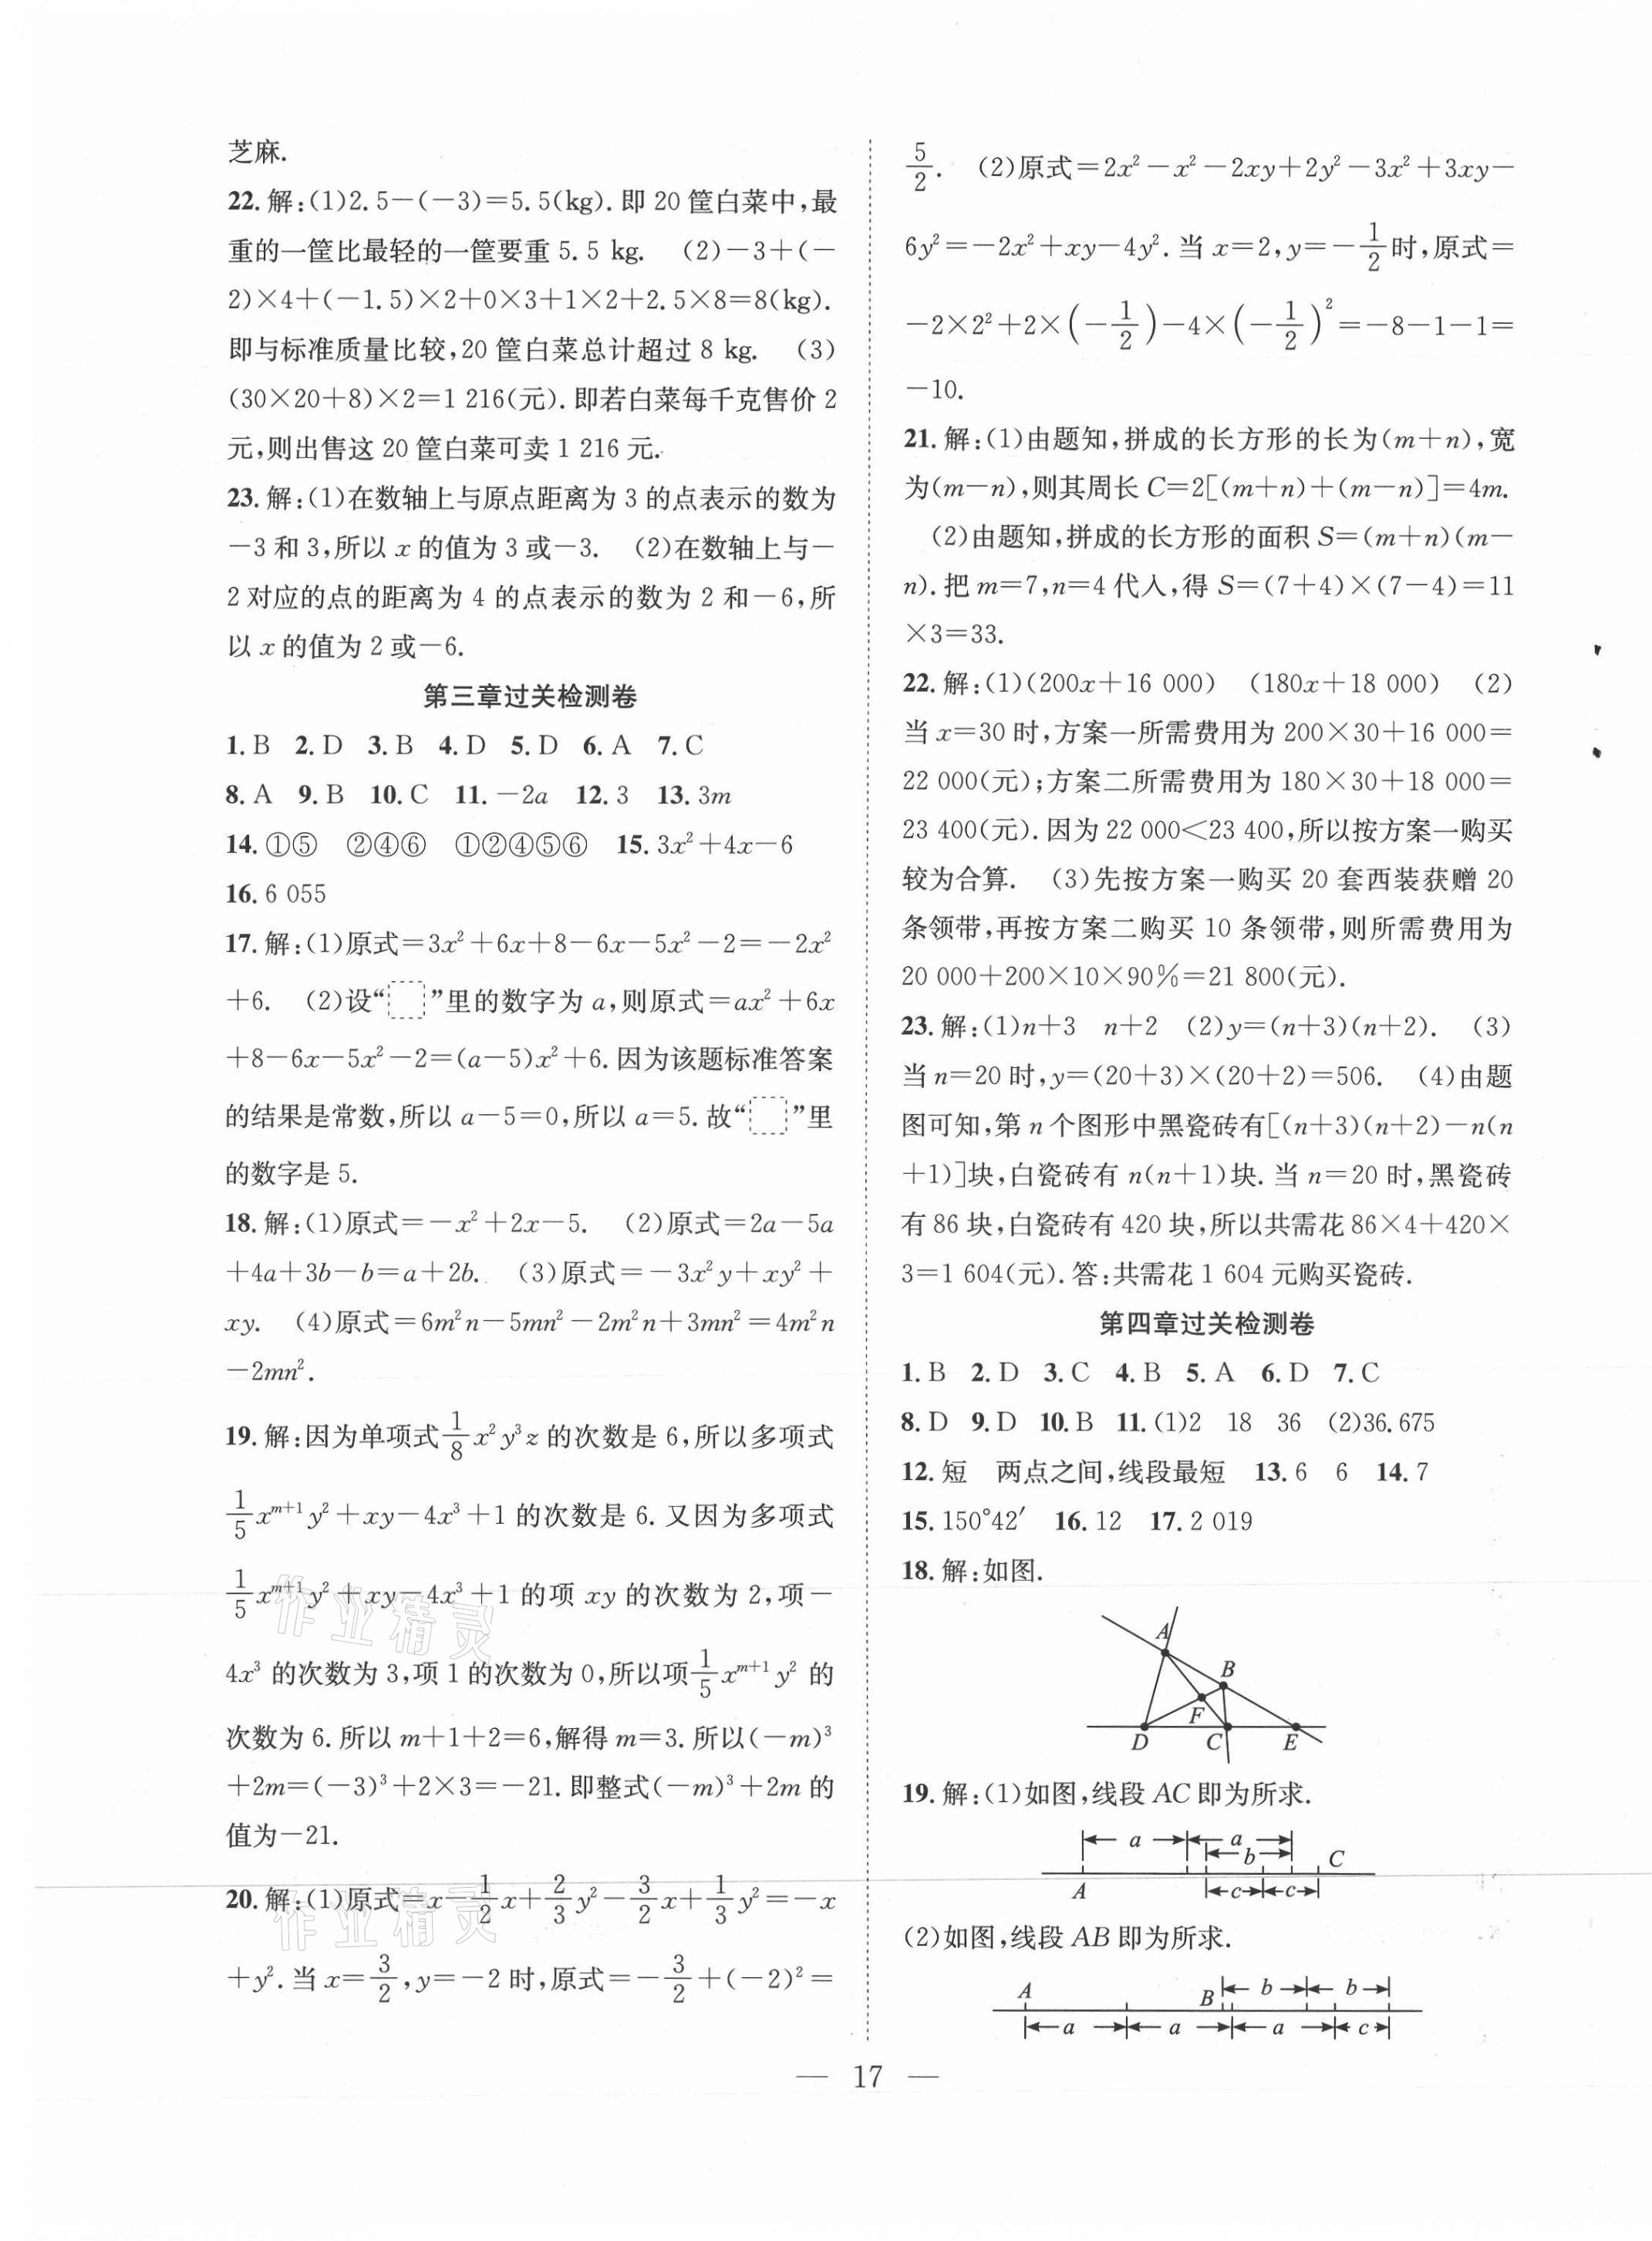 芝麻.
22.解:(1)2.5-(-3)=5.5(kg).即 20 筐白菜中,最
重的一筐比最轻的一筐要重 5.5 kg. (2)-3+(-
2)×4+(-1.5)×2+0×3+1×2+2.5×8=8(kg).
即与标准质量比较,20 筐白菜总计超过 8 kg. (3)
(30×20+8)×2=1 216(元).即若白菜每千克售价 2
元,则出售这 20 筐白菜可卖 1 216 元.
23.解:(1)在数轴上与原点距离为 3 的点表示的数为
-3 和 3,所以 x 的值为 3 或-3. (2)在数轴上与-
2 对应的点的距离为 4 的点表示的数为 2 和-6,所
以 x 的值为 2 或-6.
第三章过关检测卷
1.B 2.D 3.B 4.D 5.D 6.A 7.C
8.A 9.B 10.C 11.-2a 12.3 13.3m
14.①⑤ ②④⑥ ①②④⑤⑥ 15.3x²+4x-6
16.6 055
17.解:(1)原式=3x²+6x+8-6x-5x²-2=-2x²
+6. (2)设“□”里的数字为 a,则原式=ax²+6x
+8-6x-5x²-2=(a-5)x²+6.因为该题标准答案
的结果是常数,所以 a-5=0,所以 a=5.故“□”里
的数字是 5.
18.解:(1)原式=-x²+2x-5. (2)原式=2a-5a
+4a+3b-b=a+2b. (3)原式=-3x²y+xy²+
xy. (4)原式=6m²n-5mn²-2m²n+3mn²=4m²n
-2mn².
19.解:因为单项式1/8x²y³z 的次数是 6,所以多项式
1/5x^(m+1)y²+xy-4x³+1 的次数是 6.又因为多项式
1/5x^(m+1)y²+xy-4x³+1 的项 xy 的次数为 2,项-
4x³ 的次数为 3,项 1 的次数为 0,所以项1/5x^(m+1)y² 的
次数为 6.所以 m+1+2=6,解得 m=3.所以(-m)³
+2m=(-3)³+2×3=-21.即整式(-m)³+2m 的
值为-21.
20.解:(1)原式=x-1/2x+2/3y²-3/2x+1/3y²=-x
+y².当 x=3/2,y=-2 时,原式=-3/2+(-2)²=
5/2. (2)原式=2x²-x²-2xy+2y²-3x²+3xy-
6y²=-2x²+xy-4y².当 x=2,y=-1/2时,原式=
-2×2²+2×(-1/2)-4×(-1/2)²=-8-1-1=
-10.
21.解:(1)由题知,拼成的长方形的长为(m+n),宽
为(m-n),则其周长 C=2[(m+n)+(m-n)]=4m.
(2)由题知,拼成的长方形的面积 S=(m+n)(m-
n).把 m=7,n=4 代入,得 S=(7+4)×(7-4)=11
×3=33.
22.解:(1)(200x+16 000) (180x+18 000) (2)
当 x=30 时,方案一所需费用为 200×30+16 000=
22 000(元);方案二所需费用为 180×30+18 000=
23 400(元).因为 22 000<23 400,所以按方案一购买
较为合算. (3)先按方案一购买 20 套西装获赠 20
条领带,再按方案二购买 10 条领带,则所需费用为
20 000+200×10×90%=21 800(元).
23.解:(1)n+3 n+2 (2)y=(n+3)(n+2). (3)
当 n=20 时,y=(20+3)×(20+2)=506. (4)由题
图可知,第 n 个图形中黑瓷砖有[(n+3)(n+2)-n(n
+1)]块,白瓷砖有 n(n+1)块.当 n=20 时,黑瓷砖
有 86 块,白瓷砖有 420 块,所以共需花 86×4+420×
3=1 604(元).答:共需花 1 604 元购买瓷砖.
第四章过关检测卷
1.B 2.D 3.C 4.B 5.A 6.D 7.C
8.D 9.D 10.B 11.(1)2 18 36 (2)36.675
12.短 两点之间,线段最短 13.6 6 14.7
15.150°42′ 16.12 17.2 019
18.解:如图.
A
B
F
D C E
19.解:(1)如图,线段 AC 即为所求.
a a
b C
A c c
(2)如图,线段 AB 即为所求.
A B b b
a a a c
— 17 —
作业精灵
作业精灵